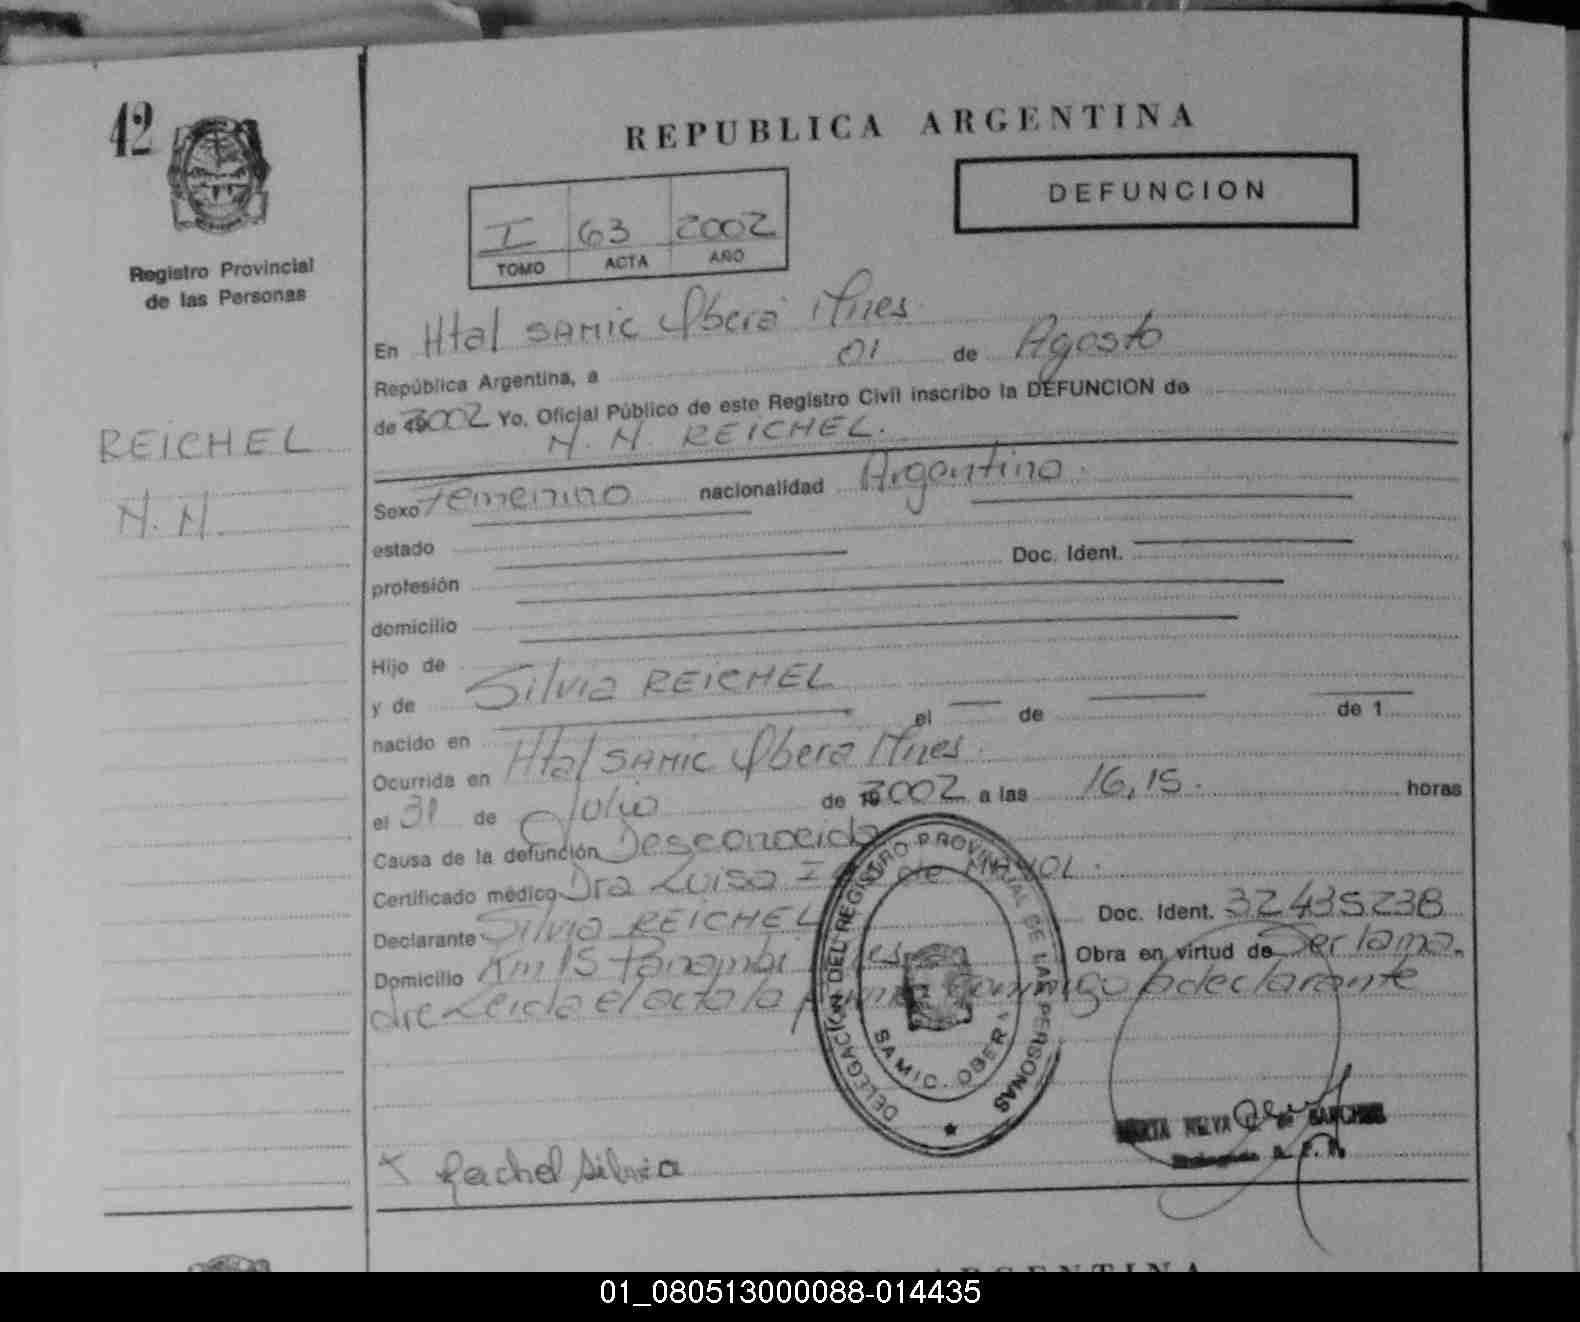 42
REPUBLICA ARGENTINA
DEFUNCION
I 63 2002
TOMO ACTA AÑO
Registro Provincial
de las Personas
REICHEL
N.N.
En Htal SAMIC Oberá Mnes.
República Argentina, a 01 de Agosto
de 2002 Yo, Oficial Público de este Registro Civil inscribo la DEFUNCION de
N. N. REICHEL.
Sexo Femenino nacionalidad Argentina.
estado
Doc. Ident.
profesión
domicilio
Hijo de
y de Silvia REICHEL
nacido en el de de 1
Ocurrida en Htal SAMIC Oberá Mnes.
el 31 de Julio de 2002 a las 16,15. horas
Causa de la defunción Desconocida
Certificado médico Dra Luisa de MAYOL.
Declarante Silvia REICHEL Doc. Ident. 32435238
Domicilio Km 15 Panambi Obra en virtud de Ser la ma-
dre Leida el acta la firma conmigo la declarante
DELEGACION DEL REGISTRO PROVINCIAL DE LAS PERSONAS
SAMIC. OBERA
MARTA NELVA de SANCHEZ
x Rachel Silvia
REPUBLICA ARGENTINA
01_080513000088-014435